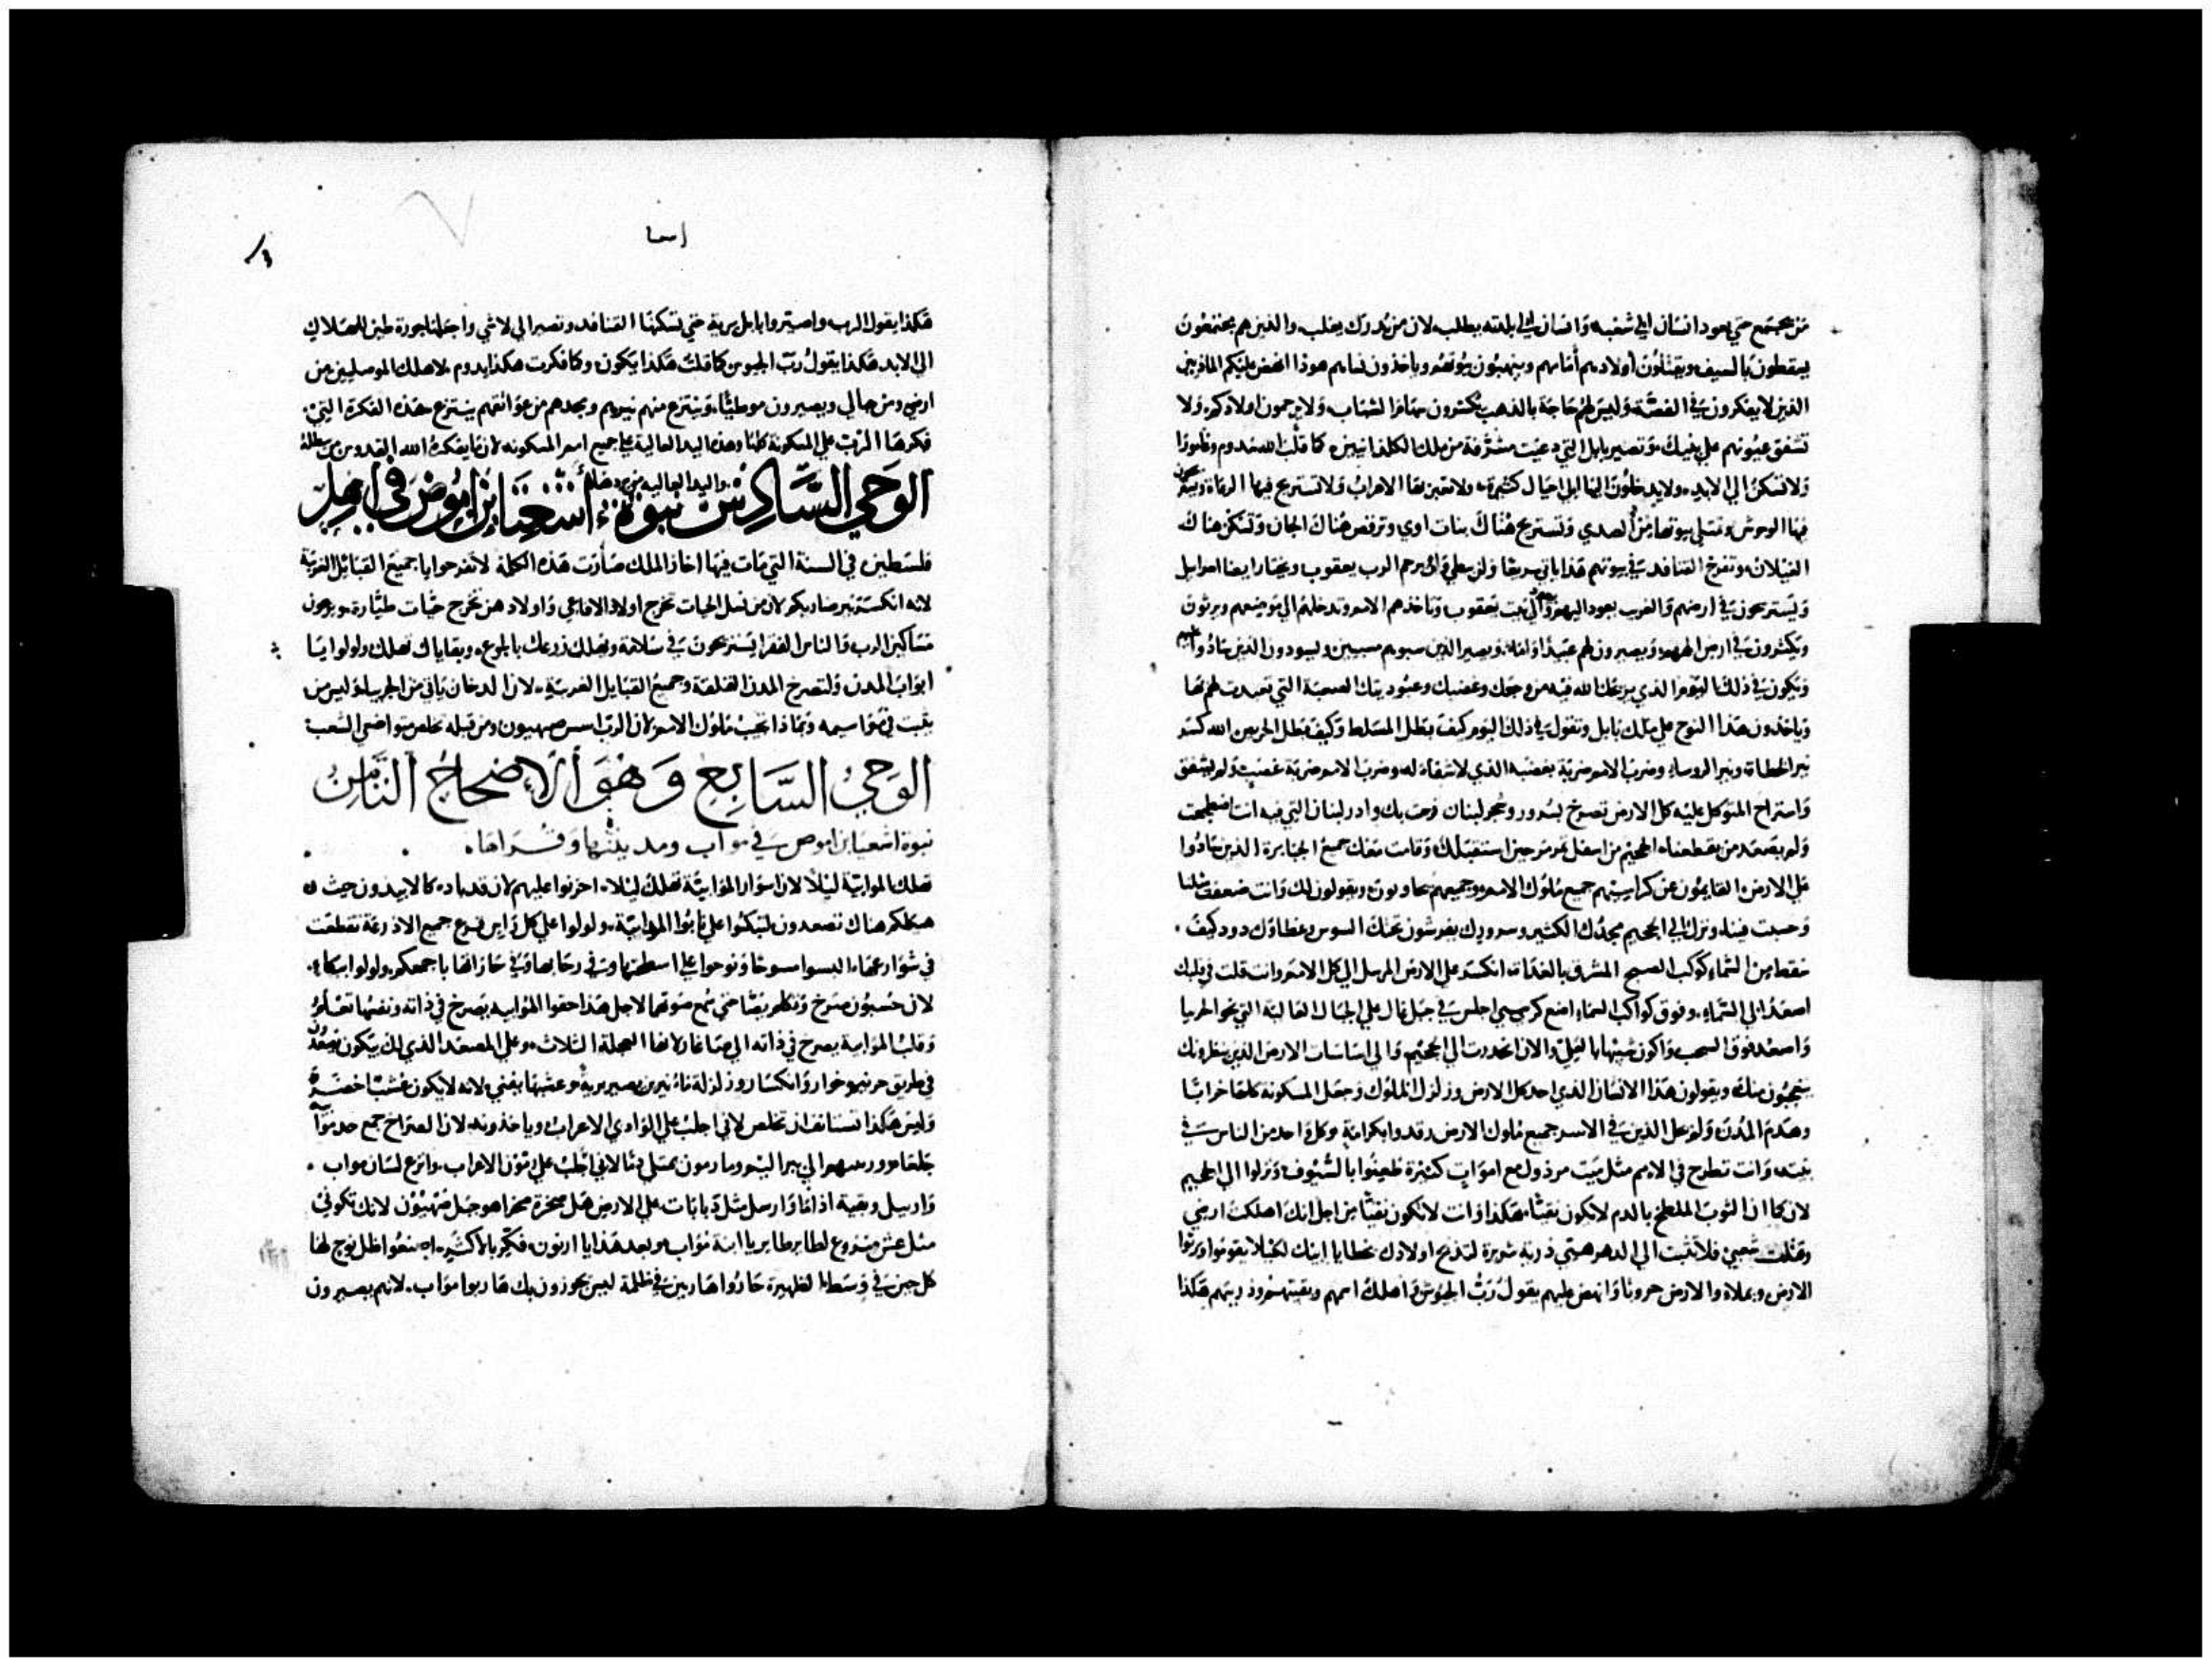 من يجتمع حتي يعود انسان الي شعبه وانسان الي بلدته يطلب لان من يدرك يغلب والذين هم مجتمعون
يسقطون بالسيف ويقتلون اولادهم أمامهم وينهبون بيوتهم وياخذون نساهم هوذا انهض عليكم الماذيين
الذين لا يفكرون في الفضة وليس لهم حاجة بالذهب يكسرون سهام الشباب ولا يرحمون اولادكم ولا
تشفق عيونهم علي بنيك وتصير بابل التي دعيت مشرفة من ملك الكلدانيين كما قلب الله سدوم وغامورا
ولا تسكن الي الابد ولا يدخلون اليها الي احيال كثيرة ولا تعبر بها الاعراب ولا تستريح فيها الرعاة
فيها الوحوش وتمتلي بيوتها من الصدي وتستريح هناك بنات اوي وترقص هناك الجان وتسكن هناك
الغيلان وتفرخ القنافد في بيوتهم هذا ياتي سريعا ولن يبطي يرحم الرب يعقوب ويختار ايضا اسراييل
ويستريحون في ارضهم والغريب يعود اليهم والي بيت يعقوب وتاخذهم الامم وتدخلهم الي موضعهم ويرثون
ويكثرون في ارض الله ويصيرون لهم عبيدا واماء ويصير الذين سبوهم مسبيين ويسودون الذين سادوا عليهم
ويكون في ذلك اليوم الذي يريحك الله فيه من وجعك وغضبك وعبوديتك الصعبة التي تعبدت لهم بها
وياخذون هذا النوح علي ملك بابل وتقول في ذلك اليوم كيف بطل المسلط وكيف بطل الحريص الله كسر
نير الخطاة ونير الروساء وضرب الامم ضربة بغضبه الذي لا شفاء له وضرب الامم ضربة غضب ولم يشفق
واستراح المتوكل عليه كل الارض تصرخ بسرور وشجر لبنان فرحت بك وارز لبنان التي فيه انت اضطجعت
ولم يصعد من يقطعنا الجحيم من اسفل تمرمر حين استقبلك وقامت معك جميع الجبابرة الذين سادوا
علي الارض القايمون عن كراسيهم جميع ملوك الامم وجميعهم يجاوبون ويقولون لك وانت ضعفت مثلنا
وحسبت فينا ونزل الي الجحيم مجدك الكثير وسرورك يفرشون تحتك السوس وغطاوك دود كيف
سقط من السماء كوكب الصبح المشرق بالغداة انكسر علي الارض المرسل الي كل الامم وانت قلت في قلبك
اصعد الي السماء وفوق كواكب السماء اضع كرسيي اجلس في جبل عال علي الجبال العالية التي نحو الجربيا
واصعد فوق السحب واكون شبيها بالعلي والان انحدرت الي الجحيم والي اساسات الارض الذين ينظرونك
يتعجبون منك ويقولون هذا الانسان الذي احد كل الارض وزلزل الملوك وجعل المسكونة كلها خرابا
وهدم المدن ولم يحل الذين في الاسر جميع ملوك الارض رقدوا بكرامة وكل واحد من الناس في
بيته وانت تطرح في الامم مثل ميت مرذول مع اموات كثيرة طعنوا بالسيوف ونزلوا الي الجحيم
لان كما ان الثوب الملطخ بالدم لا يكون نقيا هكذا وانت لا تكون نقيا من اجل انك اهلكت ارضي
وقتلت شعبي فلا تثبت الي الدهر هيي ذرية شريرة لتذبح اولادك بخطايا ابيك لكيلا يقوموا ويرثوا
الارض ويملاوا الارض حروبا وانهض عليهم يقول رب الجيوش واهلك اسمهم وبقيتهم وذريتهم هكذا
اسعيا
هكذا يقول الرب واصير بابل برية حتي تسكنها القنافد وتصير الي لاشي واجعلها جورة طين للهلاك
الي الابد هكذا يقول رب الجيوش كما قلت هكذا يكون وكما فكرت هكذا يدوم لاهلك الموصليين من
ارضي ومن جبالي ويصيرون موطيا وينتزع منهم نيرهم ومجدهم من عواتقهم ينتزع هذه الفكرة التي
فكرها الرب علي المسكونة كلها وهذه اليد العالية علي جميع امم المسكونه لان ما يفكره الله القدوس من يبطله
واليد العاليه من يردها
الوحي السادس نبوة اشعيا ابن اموص في اهل
فلسطين في السنة التي مات فيها احاز الملك صارت هذه الكلمة لا تفرحوا يا جميع القبايل الغريبة
لانه انكسر نير ضاربكم لان من نسل الحيات تخرج اولاد الافاعي واولادهن تخرج حيات طيارة ويرعون
مساكين الرب والناس الفقرا يستريحون في سلامة ويهلك زرعك بالجوع وبقاياك تهلك ولولوا يا
ابواب المدن ولتصرخ المدن القلقة وجميع القبايل الغريبة لان الدخان ياتي من الجربيا وليس من
يثبت في مواسيمه وماذا تجيب ملوك الامم لان الرب اسس صهيون ومن قبله تخلص متواضعي الشعب
الوحي السابع وهو الاصحاح الثامن
نبوة اشعيا ابن اموص في مواب ومدينتها وقراها
تهلك الموابية ليلا لان اسوار الموابية تهلك ليلا احزنوا عليهم لان قد باد كالابيدون حيث
هيكلكم هناك تصعدون لتبكوا علي نابوا الموابية ولولوا علي كل راس قرع جميع الاذرعة تقطعت
في شوارعها البسوا مسوحا ونوحوا علي اسطحتها وفي رحابها وفي حاراتها باجمعكم ولولوا ببكاء
لان حسبون صرخ حتي سمع صوتهما لاجل هذا حقوا الموابيه يصرخ في ذاته ونفسها تعلم
وقلب الموابية يصرخ في ذاته الي صاغار لانها العجلة الثلاث وعلي المصعد الذي لك يبكون يصعدون
في طريق حرنيم وخوار وانكسار وزلزلة ماء نيرين يصير برية وعشبها يفني لانه لا يكون عشبا خضرة
وليس هكذا تستانف ان تخلص لاني اجلب علي الوادي الاعراب وياخذونه لان الصراخ جمع حد مواب
جلعام الي بير اليم وما رمون يمتلي دما لاني اجلب علي رمون الاعراب وانزع لسان مواب
وارييل وبقية اذاما وارسل مثل دبابات علي الارض هل صخرة صحرا هو جبل صهيون لانك تكوني
مثل عش منزوع لطاير طاير يا ابنة مواب وبعد هذا يا ارنون فكر بالاكثر اصنعوا ظل نوح لها
كل حين في وسط الظهيرة حاروا هاربين في ظلمة ليس يحوزون بك هاربوا مواب لانهم يصيرون